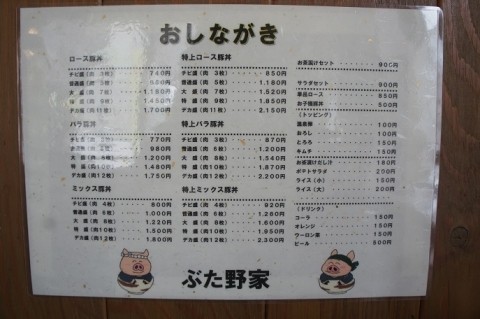 おしながき
ロース豚丼
チビ盛(肉 3枚) 740円
普通盛(肉 5枚)
大 盛(肉 7枚) 1,180円
特 盛(肉 9枚) 1,400円
デカ盛(肉11枚) 1,700円
バラ豚丼
チビ盛(肉 770円
980円
大 盛(肉 1,200円
特 盛(肉10 1,480円
デカ盛(肉12枚) 1,750円
ミックス豚丼
チビ盛(肉 4枚) 800円
普通盛(肉 6枚) 1,000円
大 盛(肉 8枚) 1,220円
特 盛(肉10枚) 1,500円
デカ盛(肉12枚) 1,800円
特上ロース豚丼
チビ盛(肉 3枚) 850円
普通盛(肉 5枚) 1,180円
大 盛(肉 7枚) 1,520円
特 盛(肉 9枚) 1,850円
デカ盛(肉11枚) 2,150円
特上バラ豚丼
チビ盛(肉 3枚) 870円
普通盛(肉 6枚) 1,200円
大 盛(肉 8枚) 1,540円
特 盛(肉10枚)
デカ盛(肉12枚) 2,200円
特上ミックス豚丼
チビ盛(肉 4枚) 920円
普通盛(肉 6枚) 1,280円
大 盛(肉 8枚) 1,600円
特 盛(肉10枚) 1,950円
デカ盛(肉12枚) 2,300円
お茶漬けセット 900円
サラダセット 900円
単品ロース 850円
お子様豚丼 500円
(トッピング)
温泉卵 100円
おろし 100円
とろろ 150円
キムチ 150円
お茶漬けだし汁 150円
ポテトサラダ 200円
ライス(小) 150円
ライス(大) 200円
(ドリンク)
コーラ 150円
オレンジ 150円
ウーロン茶 150円
ビール 500円
ぶた野家